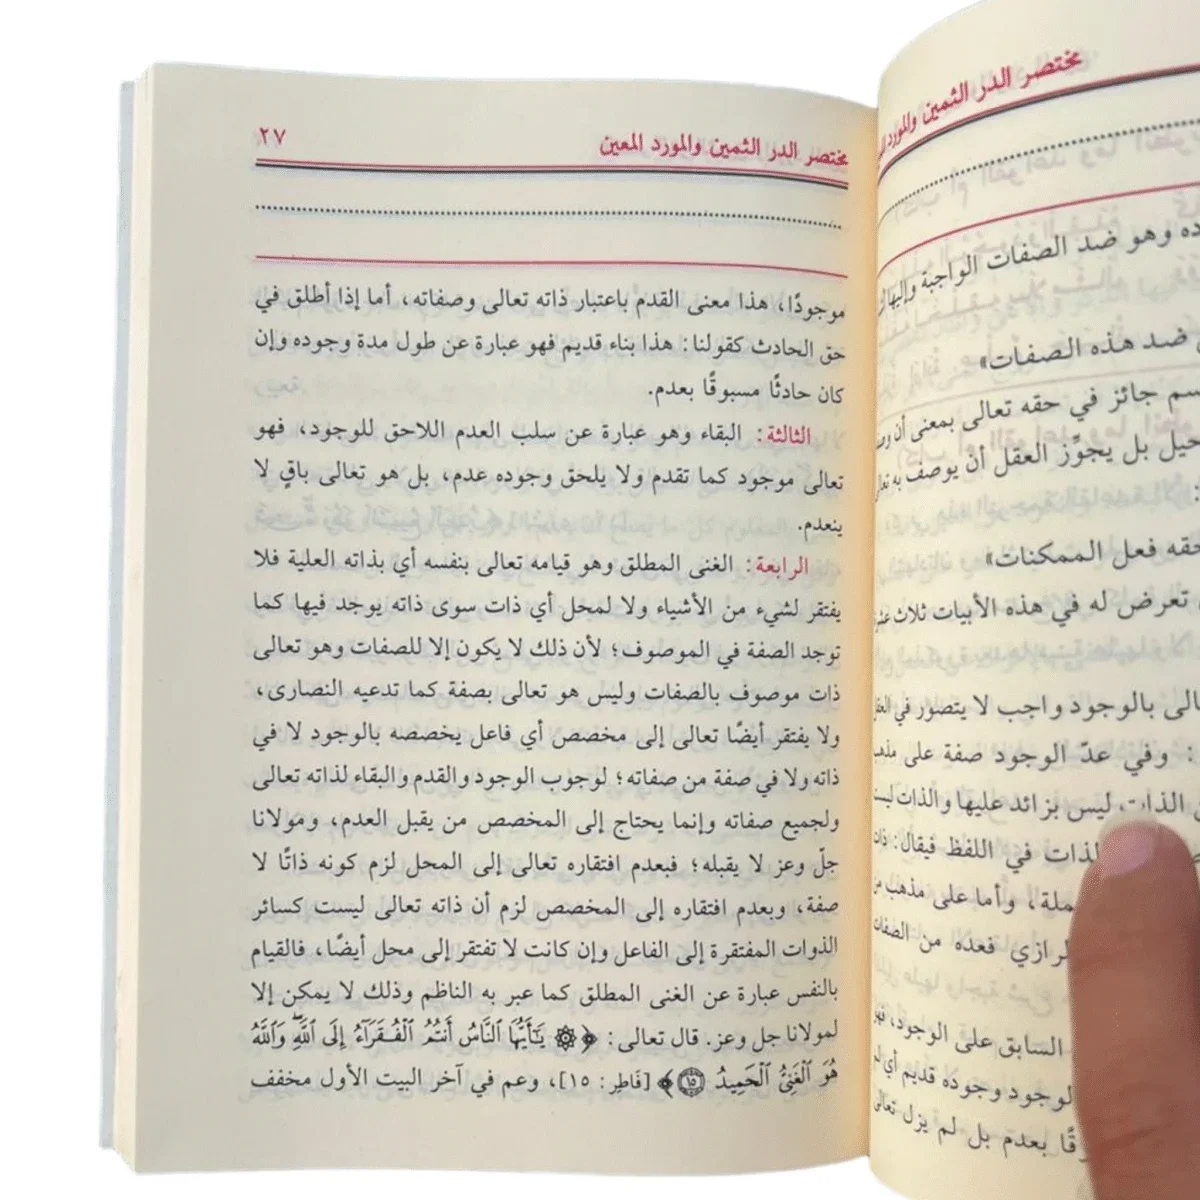 مختصر الدر الثمين والمورد
وهو ضد الصفات الواجبة وإليها
ضد هذه الصفات»
جائز في حقه تعالى بمعنى أن
بل يجوّز العقل أن يوصف به
حقه فعل الممكنات»
تعرض له في هذه الأبيات ثلاث
بالوجود واجب لا يتصور في العقل
: وفي عدّ الوجود صفة على
ليس بزائد عليها والذات ليست
في اللفظ فيقال: ذات
وأما على مذهب من
فعده من الصفات
السابق على الوجود، فهو
وجوده قديم أي لم
بعدم بل لم يزل تعالى
مختصر الدر الثمين والمورد المعين ٢٧
موجودًا، هذا معنى القدم باعتبار ذاته تعالى وصفاته، أما إذا أطلق في
حق الحادث كقولنا: هذا بناء قديم فهو عبارة عن طول مدة وجوده وإن
كان حادثًا مسبوقًا بعدم.
الثالثة: البقاء وهو عبارة عن سلب العدم اللاحق للوجود، فهو
تعالى موجود كما تقدم ولا يلحق وجوده عدم، بل هو تعالى باقٍ لا
ينعدم.
الرابعة: الغنى المطلق وهو قيامه تعالى بنفسه أي بذاته العلية فلا
يفتقر لشيء من الأشياء ولا لمحل أي ذات سوى ذاته يوجد فيها كما
توجد الصفة في الموصوف؛ لأن ذلك لا يكون إلا للصفات وهو تعالى
ذات موصوف بالصفات وليس هو تعالى بصفة كما تدعيه النصارى،
ولا يفتقر أيضًا تعالى إلى مخصص أي فاعل يخصصه بالوجود لا في
ذاته ولا في صفة من صفاته؛ لوجوب الوجود والقدم والبقاء لذاته تعالى
ولجميع صفاته وإنما يحتاج إلى المخصص من يقبل العدم، ومولانا
جلّ وعز لا يقبله؛ فبعدم افتقاره تعالى إلى المحل لزم كونه ذاتًا لا
صفة، وبعدم افتقاره إلى المخصص لزم أن ذاته تعالى ليست كسائر
الذوات المفتقرة إلى الفاعل وإن كانت لا تفتقر إلى محل أيضًا، فالقيام
بالنفس عبارة عن الغنى المطلق كما عبر به الناظم وذلك لا يمكن إلا
لمولانا جل وعز. قال تعالى: ﴿۞ يَٰٓأَيُّهَا ٱلنَّاسُ أَنتُمُ ٱلْفُقَرَآءُ إِلَى ٱللَّهِۖ وَٱللَّهُ
هُوَ ٱلْغَنِيُّ ٱلْحَمِيدُ ١٥﴾ [فَاطِر: ١٥]، وعم في آخر البيت الأول مخفف